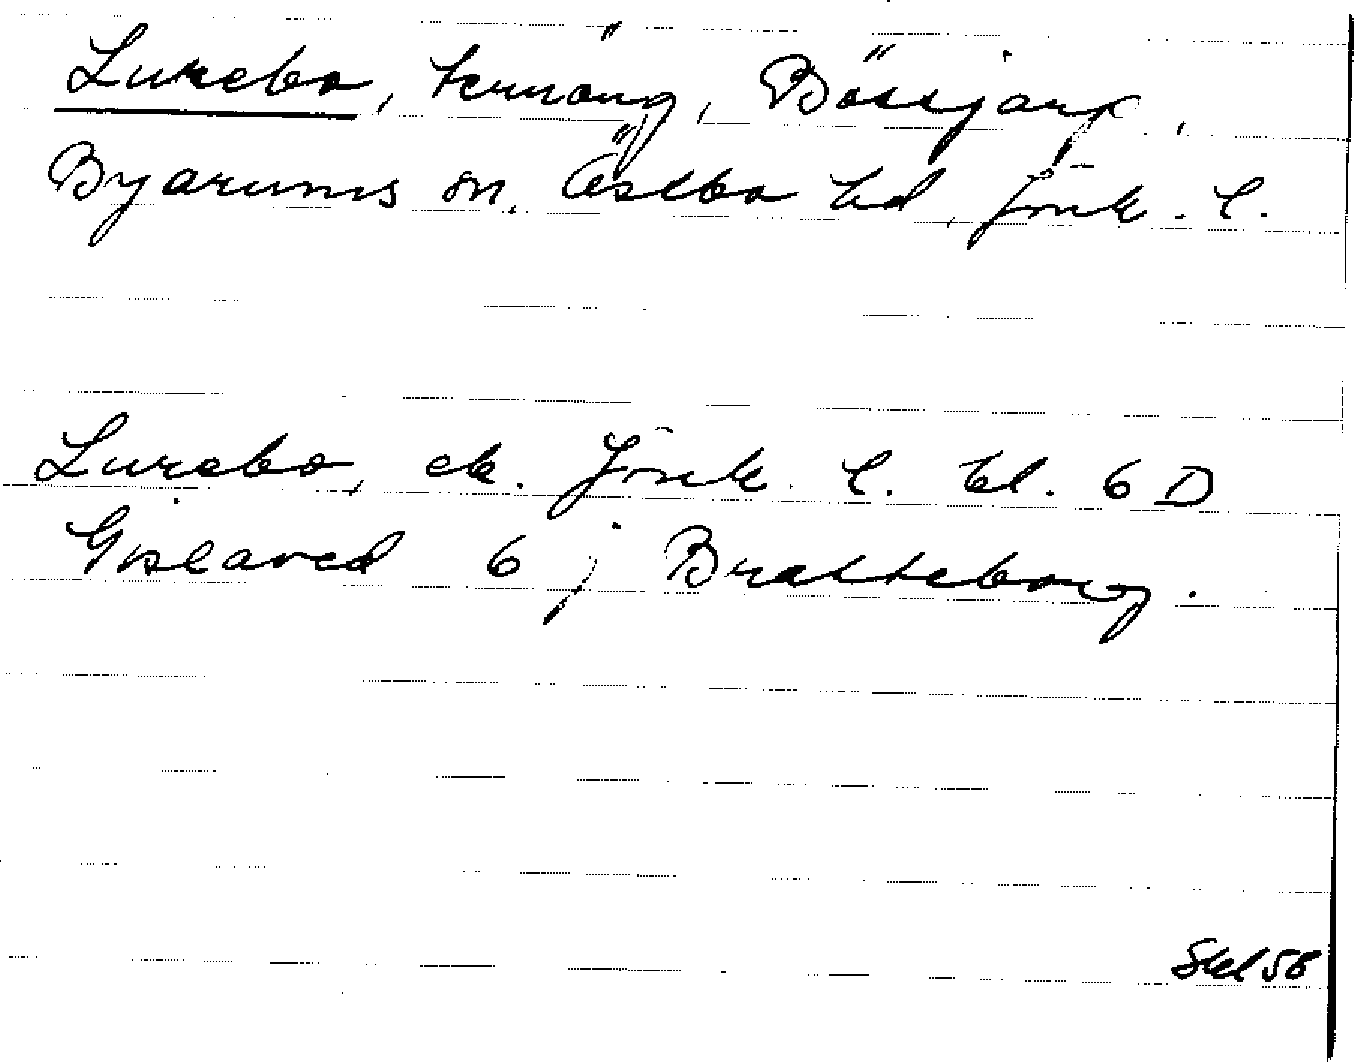 Lurebo, hemäng, Bössjarp,
Byarums sn. Östbo hd, Jönk. l.
Lurebo, ek. Jönk. l. bl. 6 D
Gislaved 6 j Bratteborg.
Skl 58